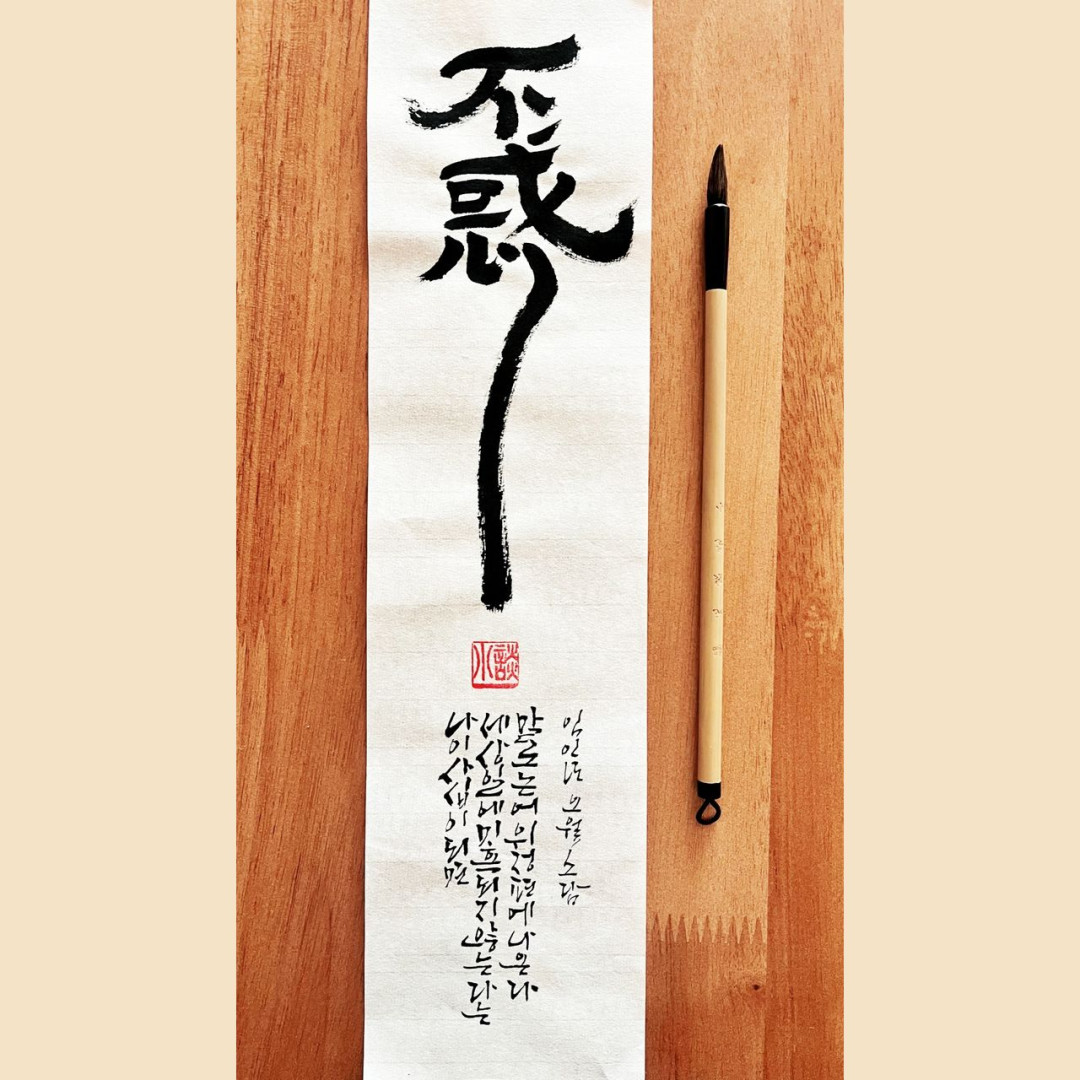 不惑
小談
나이 사십이 되면
세상일에 미혹되지 않는다는
말로 논어 위정편에 나온다
임인년 오월 소담